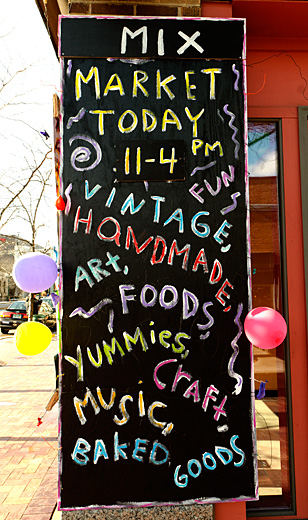 MIX
MARKET
TODAY
11-4 PM
FUN
VINTAGE,
HANDMADE,
ART,
FOODS,
YUMMIES,
CRAFT,
MUSIC,
BAKED
GOODS